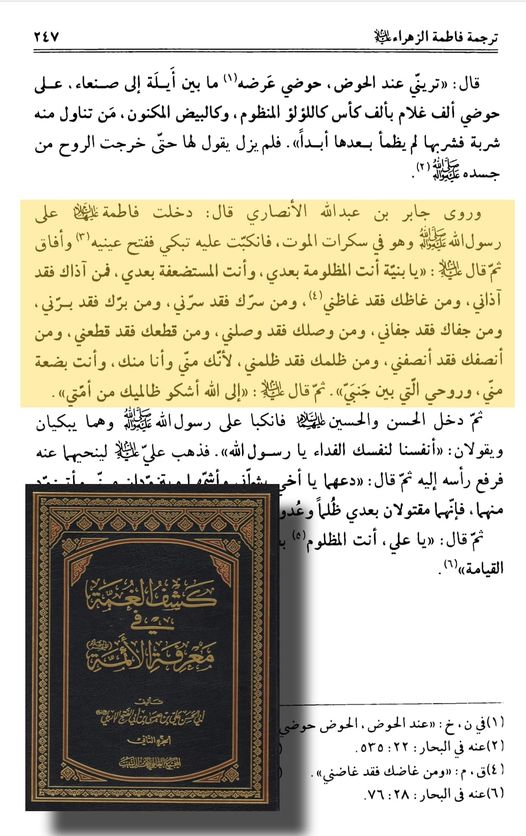 ترجمة فاطمة الزهراء عليها السلام ٢٤٧
قال: «تريني عند الحوض، حوضي عَرضه(١) ما بين أَيـلَة إلى صـنعاء، عـلى
حوضي ألف غلام بألف كأس كاللؤلؤ المنظوم، وكالبيض المكنون، مَن تناول منه
شربة فشربها لم يظمأ بـعدها أبـداً». فلم يزل يقول لها حتّى خرجت الروح من
جسده ﷺ(٢).
وروى جابر بن عبدالله الأنصاري قال: دخلت فاطمة عليها السلام على
رسول الله ﷺ وهو في سكرات الموت، فانكبّت عليه تبكي ففتح عينيه(٣) وأفاق
ثمّ قال عليه السلام: «يا بنيّة أنت المظلومة بعدي، وأنت المستضعفة بعدي، فمن آذاك فقد
آذاني، ومن غاظك فقد غاظني(٤)، ومن سرّك فقد سرّني، ومن برّك فقد بـرّني،
ومن جفاك فقد جفاني، ومن وصلك فقد وصلني، ومن قطعك فقد قطعني، ومن
أنصفك فقد أنصفني، ومن ظلمك فقد ظلمني، لأنّك منّي وأنا منك، وأنت بضعة
منّي، وروحي الّتي بين جَنبَيّ». ثمّ قال عليه السلام: «إلى الله أشكو ظالميك من أمّتي».
ثمّ دخل الحسن والحسين عليهما السلام فانكبا على رسول الله ﷺ وهما يبكيان
ويقولان: «أنفسنا لنفسك الفداء يا رسـول الله». فذهب عليّ عليه السلام لينحيهما عنه
فرفع رأسه إليه ثمّ قال: «دعهما يا أخي
منهما، فإنّهما مقتولان بعدي ظُلماً وعُدو
ثمّ قال: «يا علي، أنت المظلوم(٥)
القيامة»(٦).
كشف الغمة
في
معرفة الأئمة
تأليف
الجزء الثاني
(١) في ن، خ: «عند الحوض، الحوض حوضي
(٢) عنه في البحار: ٢٢: ٥٣٥.
(٤) ق، م: «ومن غاضك فقد غاضني».
(٦) عنه في البحار: ٢٨: ٧٦.